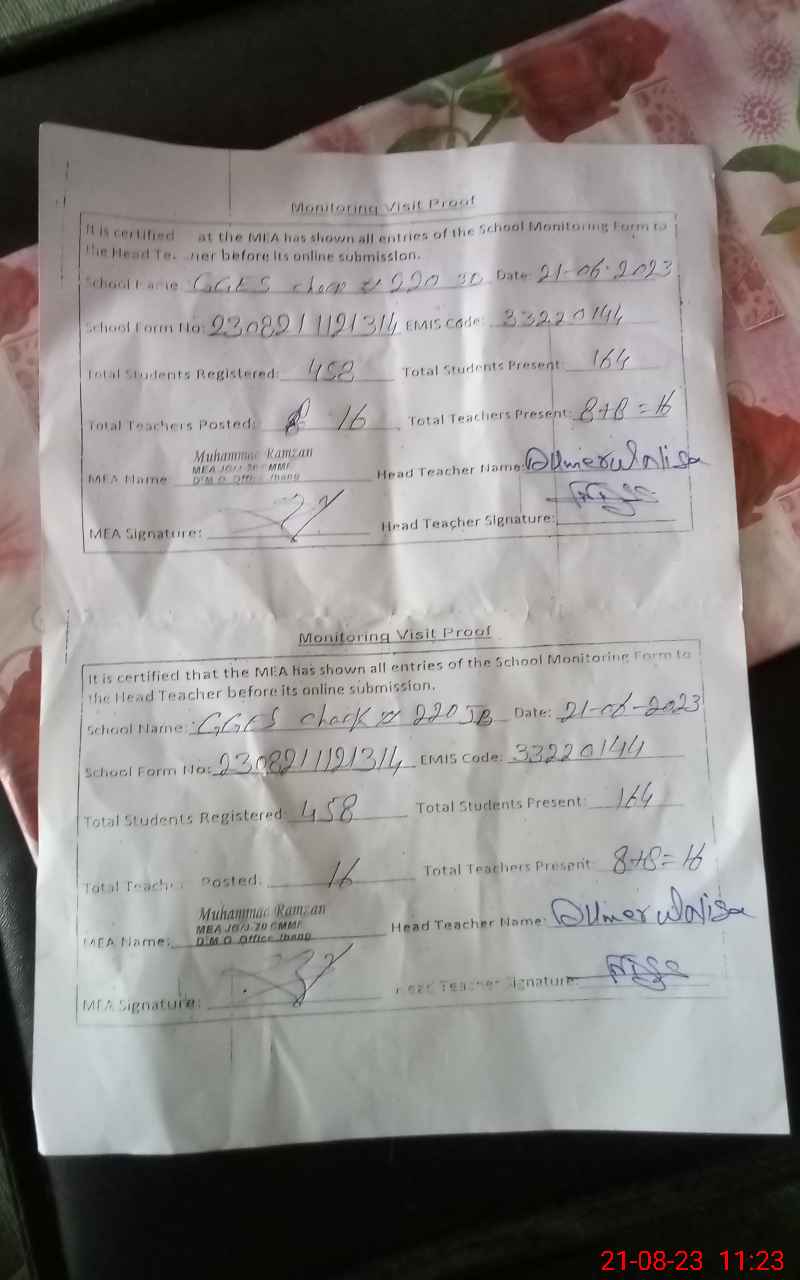 Monitoring Visit Proof
It is certified at the MEA has shown all entries of the School Monitoring Form to
the Head Te ner before its online submission.
School Name GGES chack # 220 JB Date: 21-06-2023
School Form No: 2308211121314 EMIS Code: 33220144
Total Students Registered: 458 Total Students Present: 164
Total Teachers Posted: 16 Total Teachers Present: 8+8=16
Muhammac Ramzan
MEA JG/J-20 CMMF
MEA Name D.M.O. Office Jhang Head Teacher Name:
MEA Signature: Head Teacher Signature:
Monitoring Visit Proof
It is certified that the MEA has shown all entries of the School Monitoring Form to
the Head Teacher before its online submission.
School Name: GGES chack # 220 JB Date: 21-06-2023
School Form No: 2308211121314 EMIS Code: 33220144
Total Students Registered: 458 Total Students Present: 164
Total Teacher Posted: 16 Total Teachers Present 8+8=16
Muhammac Ramzan
MEA JG/J-20 CMMF
MEA Name: D.M.O. Office Jhang Head Teacher Name:
MEA Signature: Head Teacher Signature:
21-08-23 11:23